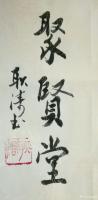 聚賢堂
耿涛书